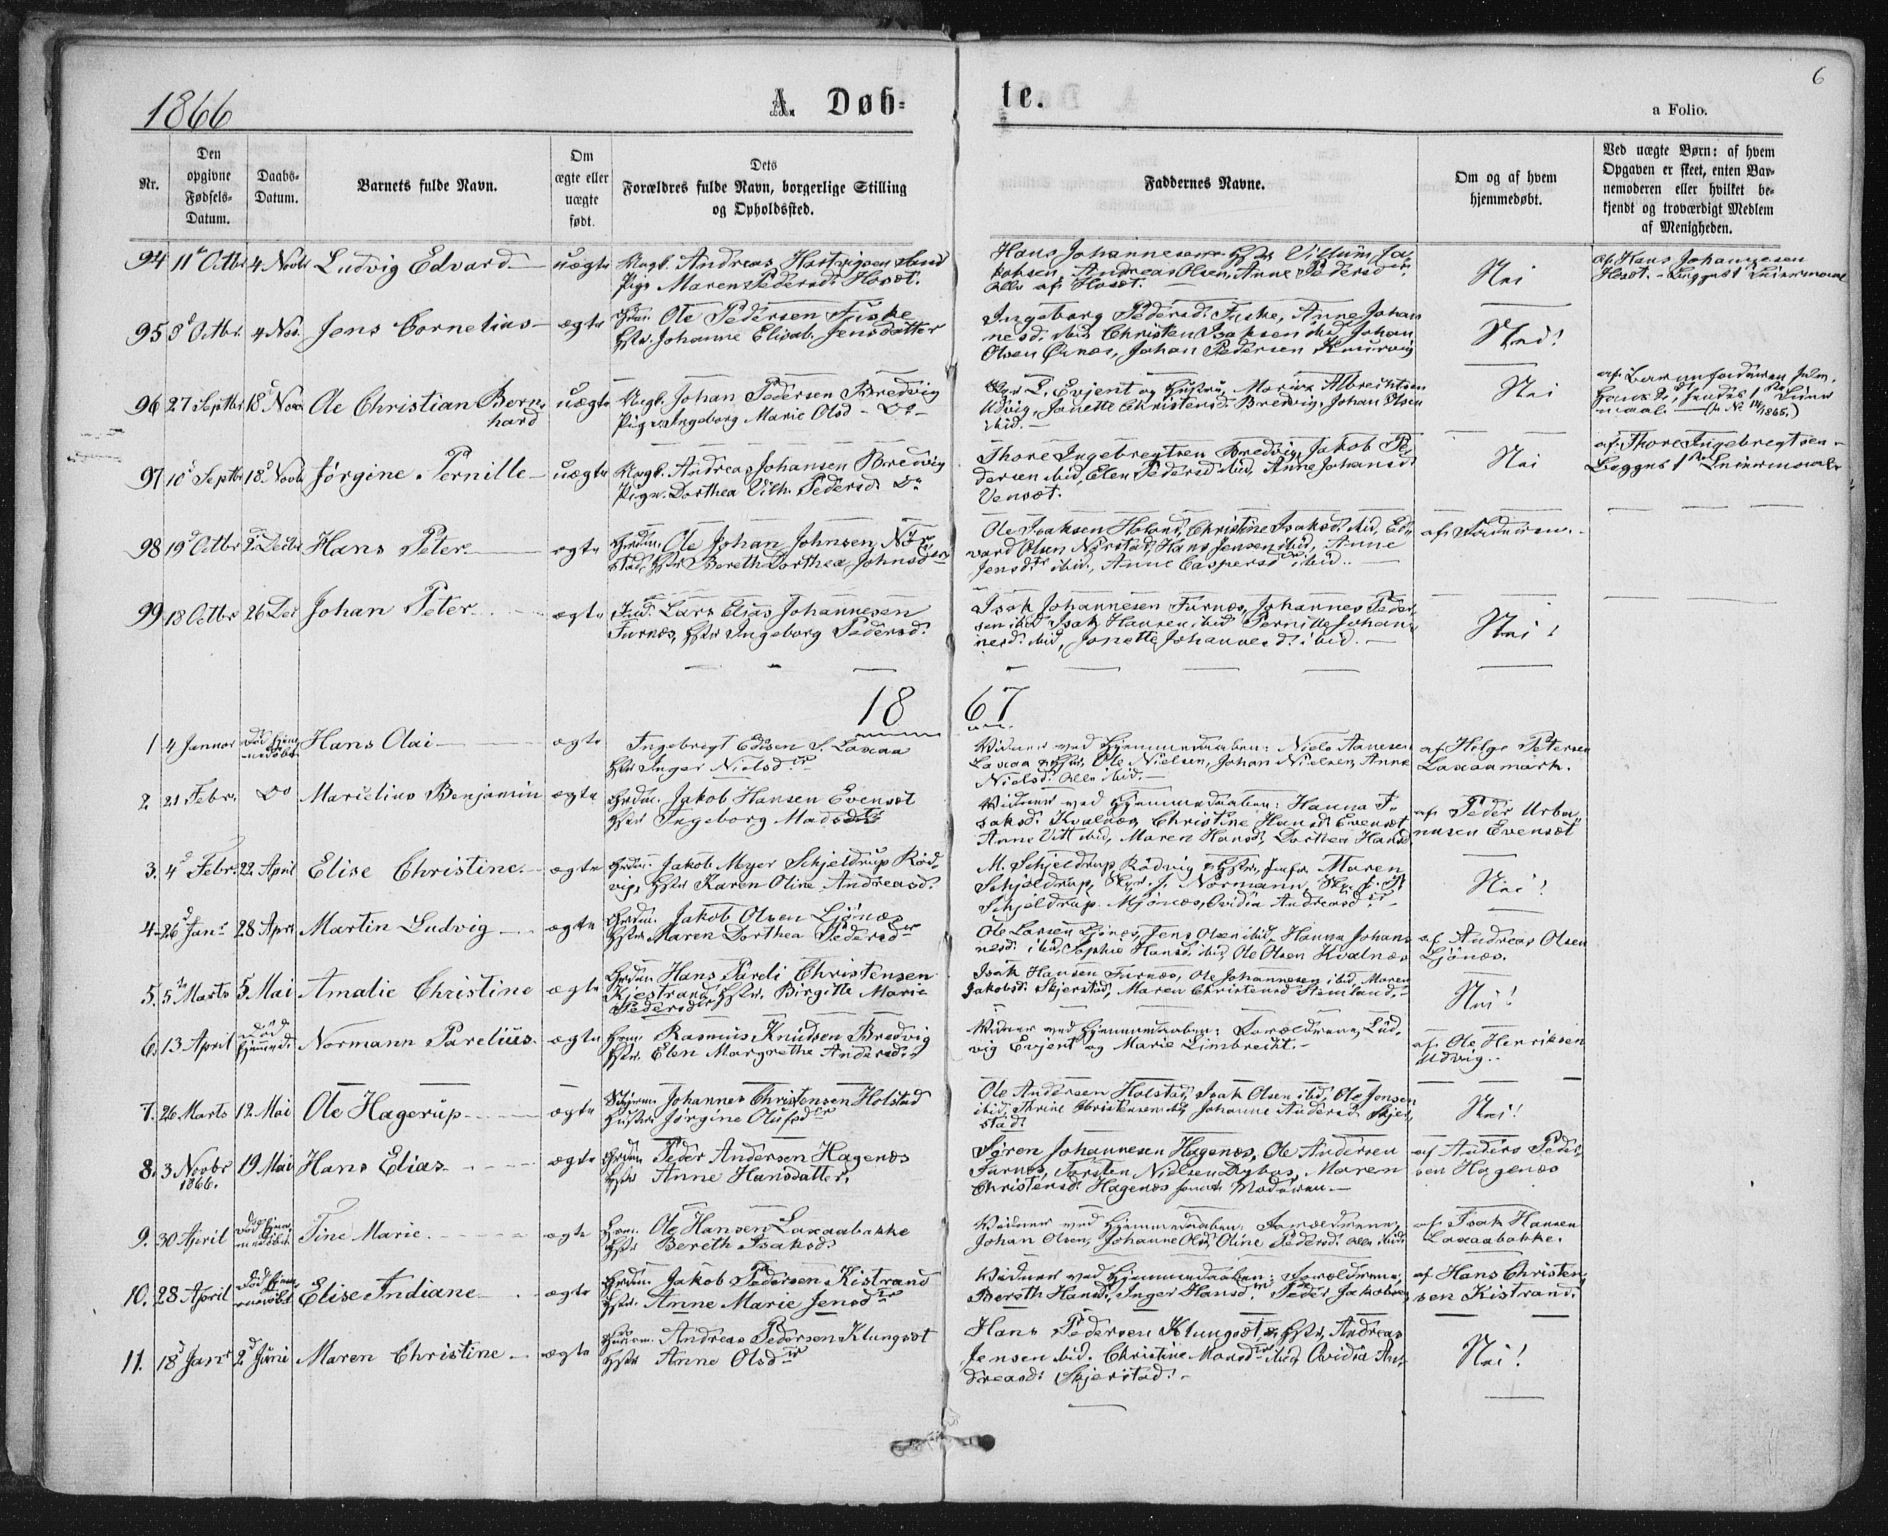 1866
A. Døb=
te.
6
a Folio.
Nr.
Den opgivne Fødsels-Datum.
Daabs-Datum.
Barnets fulde Navn.
Om ægte eller uægte født.
Dets Forældres fulde Navn, borgerlige Stilling og Opholdssted.
Faddernes Navne.
Om og af hvem hjemmedøbt.
Ved uægte Børn: af hvem Opgaven er skeet, enten Barnemoderen eller hvilket bekjendt og troværdigt Medlem af Menigheden.
94 11 Octbr 4 Novbr Ludvig Edvard uægte Ungk. Andreas
Pige Maren Pedersd. Hosæt.
Hans Johannesen
kobsen, Andreas Olsen, Anne Pedersd.
alle af Hosæt.
Nei
af Hans Johannesen
Hosæt.
95 8 Octbr 4 Nov. Jens Cornelius ægte Ole Pedersen Fuske
Johanne Elisab. Jensdatter
Ingeborg Pedersd. Fuske, Anne Johan
nesd. ibid, Christen Isaksen ibid, Johan
Olsen, Johan Pedersen
Nei!
96 27 Septbr 18 Nov Ole Christian Bern
hard uægte Ungk. Johan Pedersen Bredvig
Pige Ingeborg Marie Olsd. Do
L. Evjent og Hustru, Maria Albrechtsen
Udvig, Janette Christensd. Bredvig, Johan Olsen
ibid.
Nei
97 10 Septbr 18 Novb Jørgine Pernille uægte Ungk. Andreas Johansen Bredvig
Pige Dorthea Vilh. Pedersd. Do
Thore Ingebregtsen Bredvig, Jakob Pe
dersen ibid, Elen Pedersd. ibid, Anne Johansd.
Vensæt.
Nei
af Thore Ingebregtsen
Begges 1ste Leiermaal
98 19 Octbr 2 Decbr Hans Peter ægte Ole Johan Johnsen Nør
stad, Hstr Bereth Dorthea Johnsd.
Ole Isaksen Holand, Christine Isaksd. ibid, Ed
vard Olsen Nørstad, Hans Jensen ibid, Anne
Jensd. ibid, Anne Caspersd. ibid.
af Faderen.
99 18 Octbr 26 Dec Johan Peter ægte Ind. Lars Elias Johannesen
Furnæs, Hstr Ingeborg Pedersd.
Isak Johannesen Furnæs, Johannes Peder
sen ibid, Isak Hansen ibid, Pernille Johan
nesd. ibid, Jonette Johannesd. ibid.
Nei!
18 67
1 4 Januar Død hjem
medøbt Hans Olai ægte Ingebrigt Edisen S. Laxaa
Hstr Inger Nielsd.
Vidner ved Hjemmedaaben: Niels Aanesen
Laxaa og Hstr, Ole Nielsen, Johan Nielsen, Anne
Nielsd. alle ibid.
af Helge Petersen
Laxaamark.
2. 21 Febr. Do Marielius Benjamin ægte Grdm. Jakob Hansen Evensæt
Hstr Ingeborg Madsd.
Vidner ved Hjemmedaaben: Hanna I
saksd. Kvalnæs, Christine Hansd. Evensæt
Anne Vitt ibid, Maren Hansd, Dorthea Hansd.
af Peder Urba
nusen Evensæt
3. 4 Febr. 22 April Elise Christine. ægte Grdm. Jakob Meyer Schjeldrup Rød
vig, Hstr Karen Oline Andreasd.
M. Schjeldrup Rødvig & Hstr, Jmfr. Maren
Schjeldrup, Normann,
Schjeldrup Mjønæs, Ovidia Andreasd.
Nei!
4. 26 Jan. 28 Apr Martin Ludvig ægte Grdm. Jakob Olsen Ljønæs
Hstr. Maren Dorthea Pedersd.
Ole Larsen Ljønes, Jens Olsen ibid, Hanna Johan
nesd. ibid, Sophie Hansd. ibid, Ole Olsen Kvalnæs
af Andreas Olsen
Ljønæs.
5. 5 Marts 5 Mai Amalie Christine ægte Grdm. Hans Pareli Christensen
Kjestrand, Hstr. Birgitte Marie
Pedersd.
Isak Hansen Furnæs, Ole Johannesen ibid, Maren
Jakobsd. Skjerstad, Maren Christensd.
Nei!
6. 13 April død
hjemmed. Normann Parelius. ægte Hsm Rasmus Knudsen Bredvig
Hstr. Elen Margrethe Andersd.
Vidner ved Hjemmedaaben: Forældrene, Lud
vig Evjent og Marie Limbrecht.
af Ole Henriksen
Udvig.
7. 26 Marts 12 Mai Ole Hagerup ægte Johannes Christensen Holstad
Hustru Jørgine Olufsd.
Ole Andersen Holstad, Isak Olsen ibid, Ole Jensen
ibid, Christensen ibid, Johanne Andersd. Skjer
stad.
Nei!
8. 3 Novbr
1866. 19 Mai Hans Elias ægte Grdm Peder Andersen Hagenæs
Hstr Anne Hansdatter.
Søren Johannesen Hagenæs, Ole Andersen
Furnæs, Torsten Nielsen, Maren
Christensd. Hagenæs samt Moderen.
af Anders Peder
sen Hagenæs
9. 30 April død hjem
medøbt Tine Marie. ægte Hsm. Ole Hansen Laxaabakke
Hstr Bereth Isaksd.
Vidner ved Hjemmedaaben: Forældrene,
Johan Olsen, Johanne Olsd, Oline Pedersd. alle ibid.
af Isak Hansen
Laxaabakke.
10. 28 April død hjem
medøbt Elise Indiane ægte Grdm. Jakob Pedersen Kistrand
Hstr. Anne Marie Jensd.
Vidner ved Hjemmedaaben: Forældrene,
Bereth Hansd, Inger Hansd, Peder Jakobsen
af Hans Christen
sen Kistrand.
11. 18 Jan 2 Juni Maren Christine ægte Andreas Pedersen Klungsæt
Hstr Anne Olsd
Hans Pedersen Klungsæt, & Hstr, Andreas
Jensen ibid. Christine Monsd. ibid, Ovidia An
dreasd. Skjerstad.
Nei!